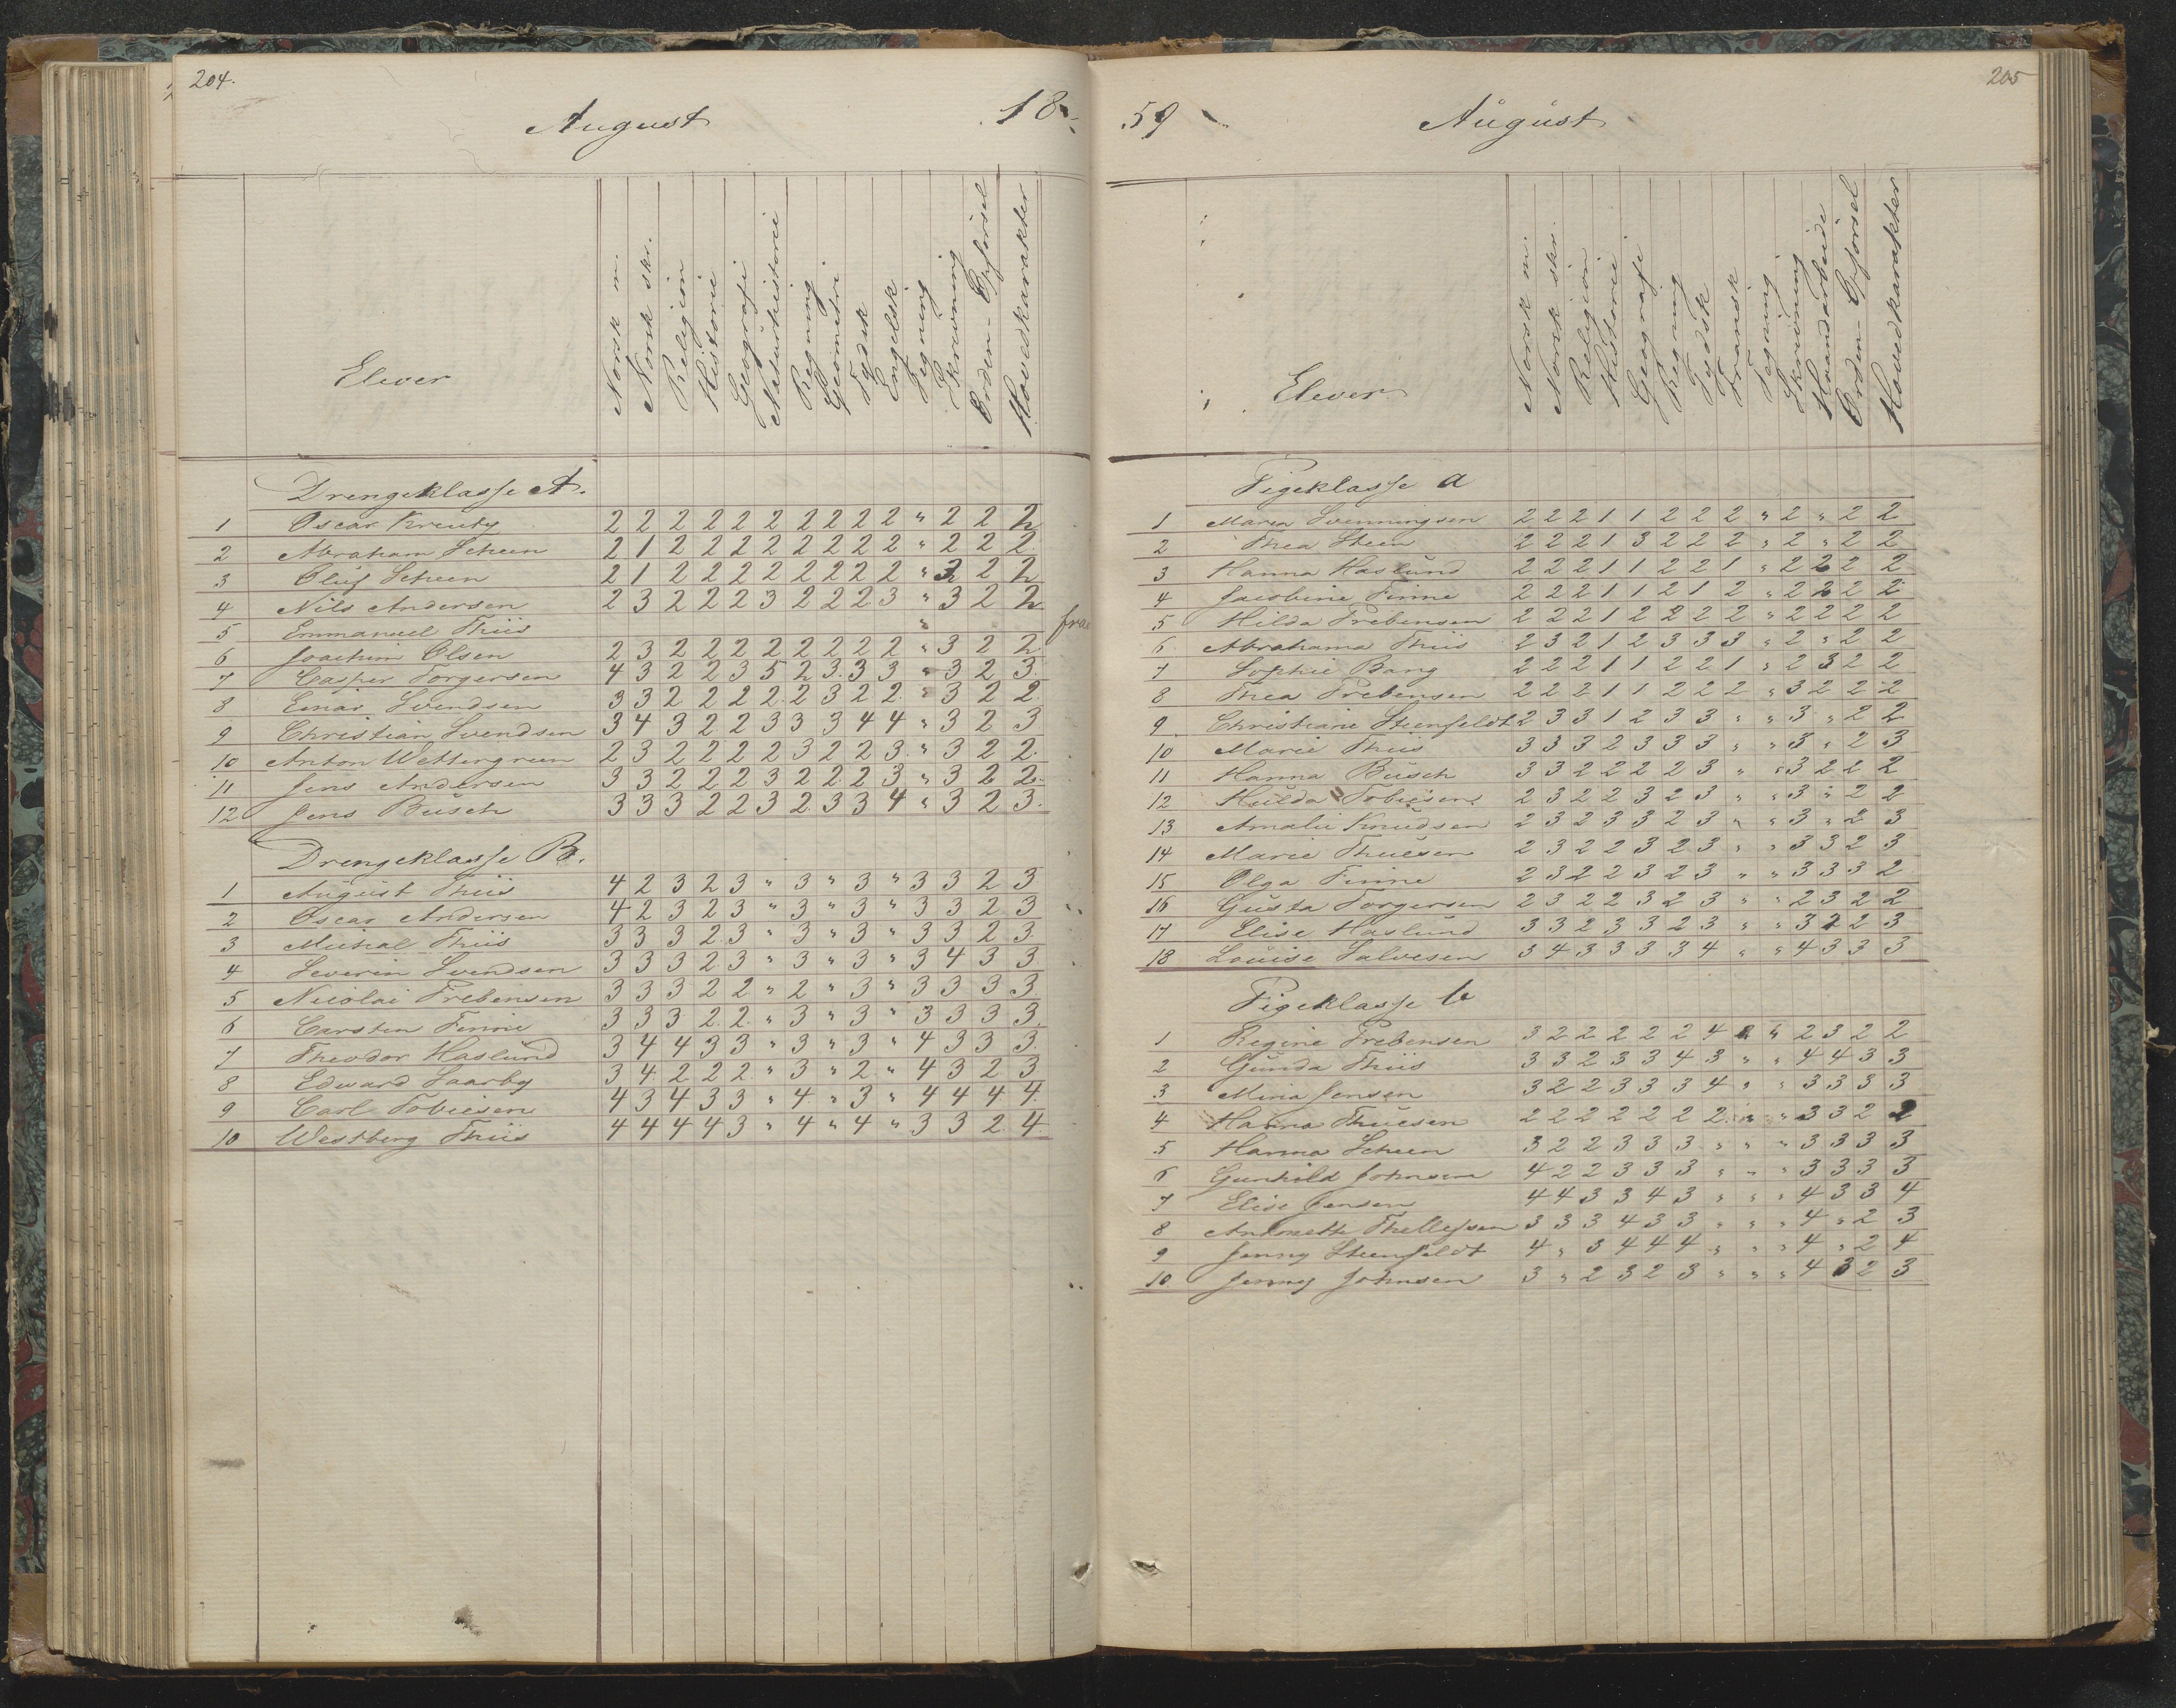 204.
August 18
Elever Norsk m. Norsk skr. Religion Historie Geografie Naturhistorie Regning Geometri Tydsk Engelsk Tegning Skrivning Orden - Opførsel Hovedkarakter
Drengeklasse A.
1 Oscar 2 2 2 2 2 2 2 2 2 2 " 2 2 2
2 Abraham Scheen 2 1 2 2 2 2 2 2 2 2 " 2 2 2
3 Oluf Scheen 2 1 2 2 2 2 2 2 2 2 " 2 2
4 Nils Andersen 2 3 2 2 2 3 2 2 2 3 " 3 2 2
5 Emmanuel Thiis "
6 Joachim Olsen 2 3 2 2 2 2 2 2 2 2 " 3 2 2
7 Casper Torgersen 4 3 2 2 2 3 5 2 3 3 3 " 3 2 3
8 Einar Svendsen 3 3 2 2 2 2 2 3 2 2 " 3 2 2
9 Christian Svendsen 3 4 3 2 2 3 3 3 4 4 " 3 2 3
10 Anton Wettergreen 2 3 2 2 2 2 3 2 2 3 " 3 2 2
11 Jens Andersen 3 3 2 2 2 3 2 2 2 3 " 3 2 2
12 Jens Busch 3 3 3 2 2 3 2 3 3 4 " 3 2 3
Drengeklasse B.
1 August Thiis 4 2 3 2 3 " 3 " 3 " 3 3 2 3
2 Oscar Andersen 4 2 3 2 3 " 3 " 3 " 3 3 2 3
3 Michal Thiis 3 3 3 2 3 " 3 " 3 " 3 3 2 3
4 Severin Svendsen 3 3 3 2 3 " 3 " 3 " 3 4 3 3
5 Nicolai Prebensen 3 3 3 2 2 " 2 " 3 " 3 3 3 3
6 Carsten Finne 3 3 3 2 2 " 3 " 3 " 3 3 3 3
7 Theodor Haslund 3 4 4 3 3 " 3 " 3 " 4 3 3 3
8 Edward Saarby 3 4 2 2 2 " 3 " 2 " 4 3 2 3
9 Carl Tobiesen 4 3 4 3 3 " 4 " 3 " 4 4 4 4
10 Westberg Thiis 4 4 4 4 3 " 4 " 4 " 3 3 2 4
205
59 August
Elever Norsk m. Norsk skr. Religion Historie Geografie Regning Tydsk Fransk Tegning Skrivning Haandarbeide Orden - Opførsel Hovedkarakter
Pigeklasse a
1 Maren Svenningsen 2 2 2 1 1 2 2 2 " 2 " 2 2
2 Thea Steen 2 2 2 1 3 2 2 2 " 2 " 2 2
3 Hanna Haslund 2 2 2 1 1 2 2 1 " 2 2 2 2
4 Jacobine Finne 2 2 2 1 1 2 1 2 " 2 2 2 2
5 Hilda Prebensen 2 2 2 1 2 2 2 2 " 2 2 2 2
6 Abrahama Thiis 2 3 2 1 2 3 3 3 " 2 " 2 2
7 Sophie Bang 2 2 2 1 1 2 2 1 " 2 3 2 2
8 Thea Prebensen 2 2 2 1 1 2 2 2 " 3 2 2 2
9 Christiane Steenfeldt 2 3 3 1 2 3 3 " " 3 " 2 2
10 Marie Thiis 3 3 3 2 3 3 3 " " 3 " 2 3
11 Hanna Busch 3 3 2 2 2 2 3 " " 3 2 2 2
12 Hulda Tobiesen 2 3 2 2 3 2 3 " " 3 " 2 2
13 Amalie Knudsen 2 3 2 3 3 2 3 " " 3 " 2 3
14 Marie Thuesen 2 3 2 2 3 2 3 " " 3 3 2 3
15 Olga Finne 2 3 2 2 3 2 3 " " 3 3 3 2
16 Gusta Torgersen 2 3 2 2 3 2 3 " " 2 3 2 2
17 Elise Haslund 3 3 2 3 3 2 3 " " 3 2 2 3
18 Louise Salvesen 3 4 3 3 3 3 4 " " 4 3 3 3
Pigeklasse b
1 Regine Prebensen 3 2 2 2 2 2 4 " 2 3 2 2
2 Gunda Thiis 3 3 2 3 3 4 3 " " 4 4 3 3
3 Mina Jensen 3 2 2 3 3 3 4 " " 3 3 3 3
4 Hanna Thuesen 2 2 2 2 2 2 2 " " 3 3 2 2
5 Hanna Scheen 3 2 2 3 3 3 " " " 3 3 3 3
6 Gunhild Johnsen 4 2 2 3 3 3 " " " 3 3 3 3
7 Elise Jensen 4 4 3 3 4 3 " " " 4 3 3 4
8 Antonette Thellefsen 3 3 3 4 3 3 " " " 4 " 2 3
9 Jenny Steenfeldt 4 " 3 4 4 4 " " " 4 " 2 4
10. Jenny Johnsen 3 " 2 3 2 3 " " " 4 3 2 3